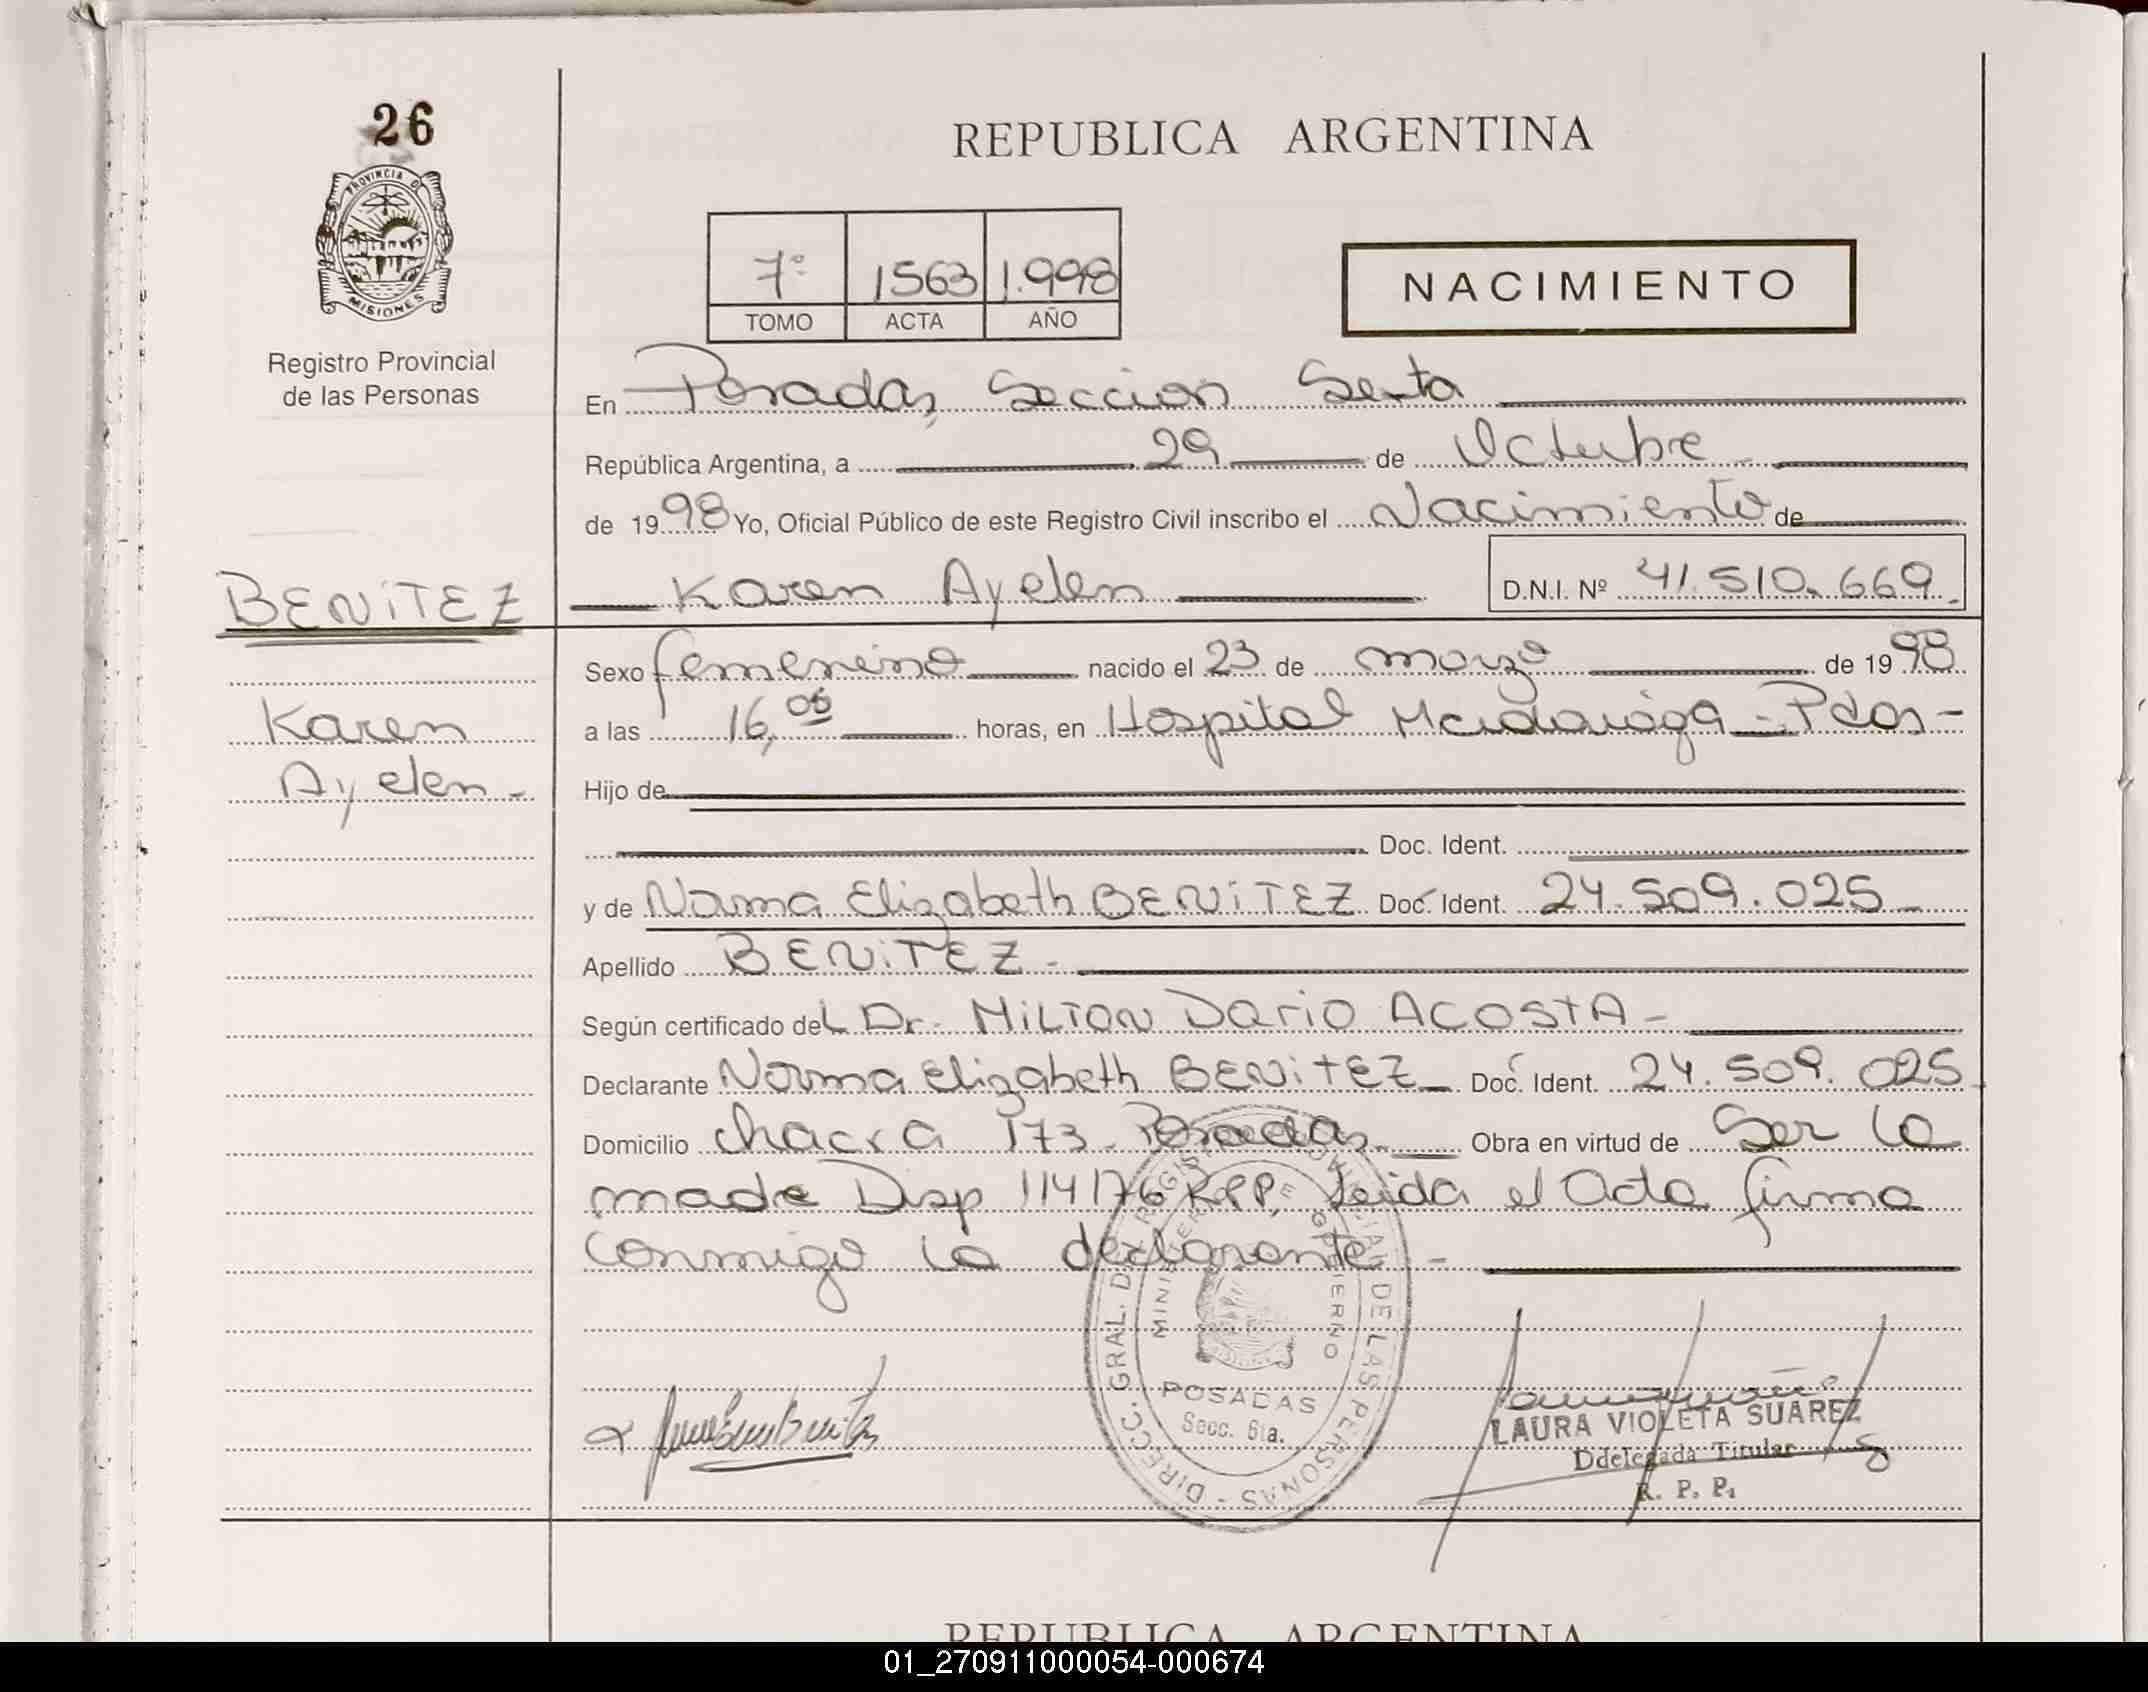 26
PROVINCIA DE
MISIONES
Registro Provincial
de las Personas
REPUBLICA ARGENTINA
7º 1563 1.998
TOMO ACTA AÑO
NACIMIENTO
En Posadas, Seccion Sexta
República Argentina, a 29 de Octubre
de 1998 Yo, Oficial Público de este Registro Civil inscribo el Nacimiento de
BENITEZ
Karen Ayelen D.N.I. Nº 41.510.669
Sexo femenino nacido el 23 de marzo de 1998
Karen
a las 16,05 horas, en Hospital Madariaga - Pdas -
Ayelen -
Hijo de
Doc. Ident.
y de Norma Elizabeth BENITEZ Doc. Ident. 24.509.025 -
Apellido BENITEZ -
Según certificado del Dr. MILTON DARIO ACOSTA -
Declarante Norma Elizabeth BENITEZ - Doc. Ident. 24.509.025
Domicilio chacra 173 - Posadas - Obra en virtud de Ser la
madre Disp 114/76 RPP, Leida el Acta firma
conmigo la declarante -
DIRECC. GRAL. DE REGISTRO DE LAS PERSONAS -
MINISTERIO DE GOBIERNO
POSADAS
Secc. 6ta.
LAURA VIOLETA SUAREZ
Ddelegada Titular
R. P. P.
REPUBLICA ARGENTINA
01_270911000054-000674